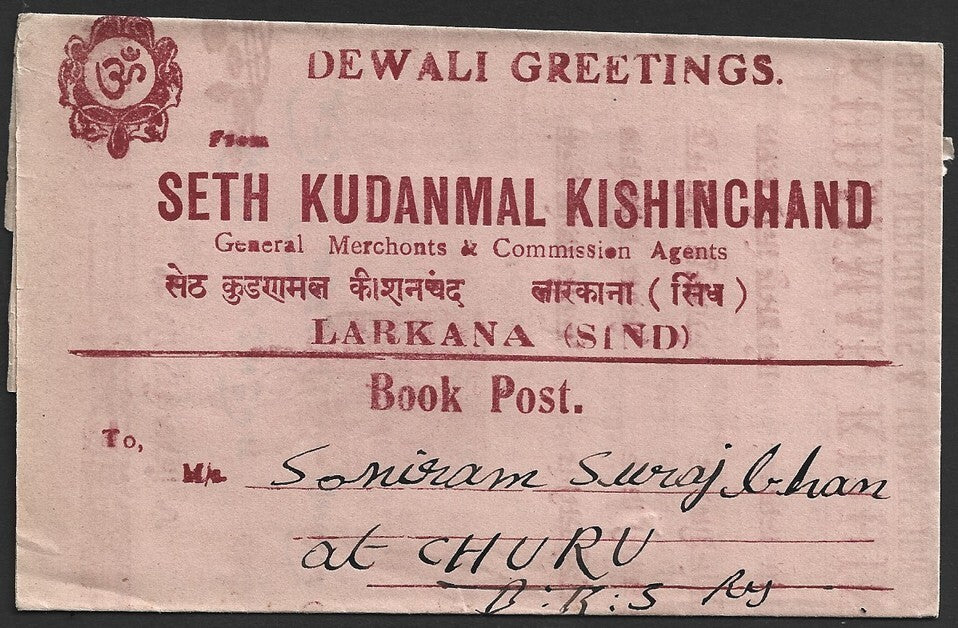 ॐ
DEWALI GREETINGS.
From
SETH KUDANMAL KISHINCHAND
General Merchonts & Commission Agents
सेठ कुडणामल कीशनचंद लारकाना ( सिंध )
LARKANA (SIND)
Book Post.
To,
M/s. Soniram Surajbhan
at CHURU
B.K.S Ry